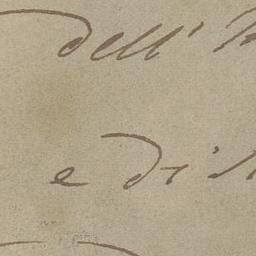 dell'
e di